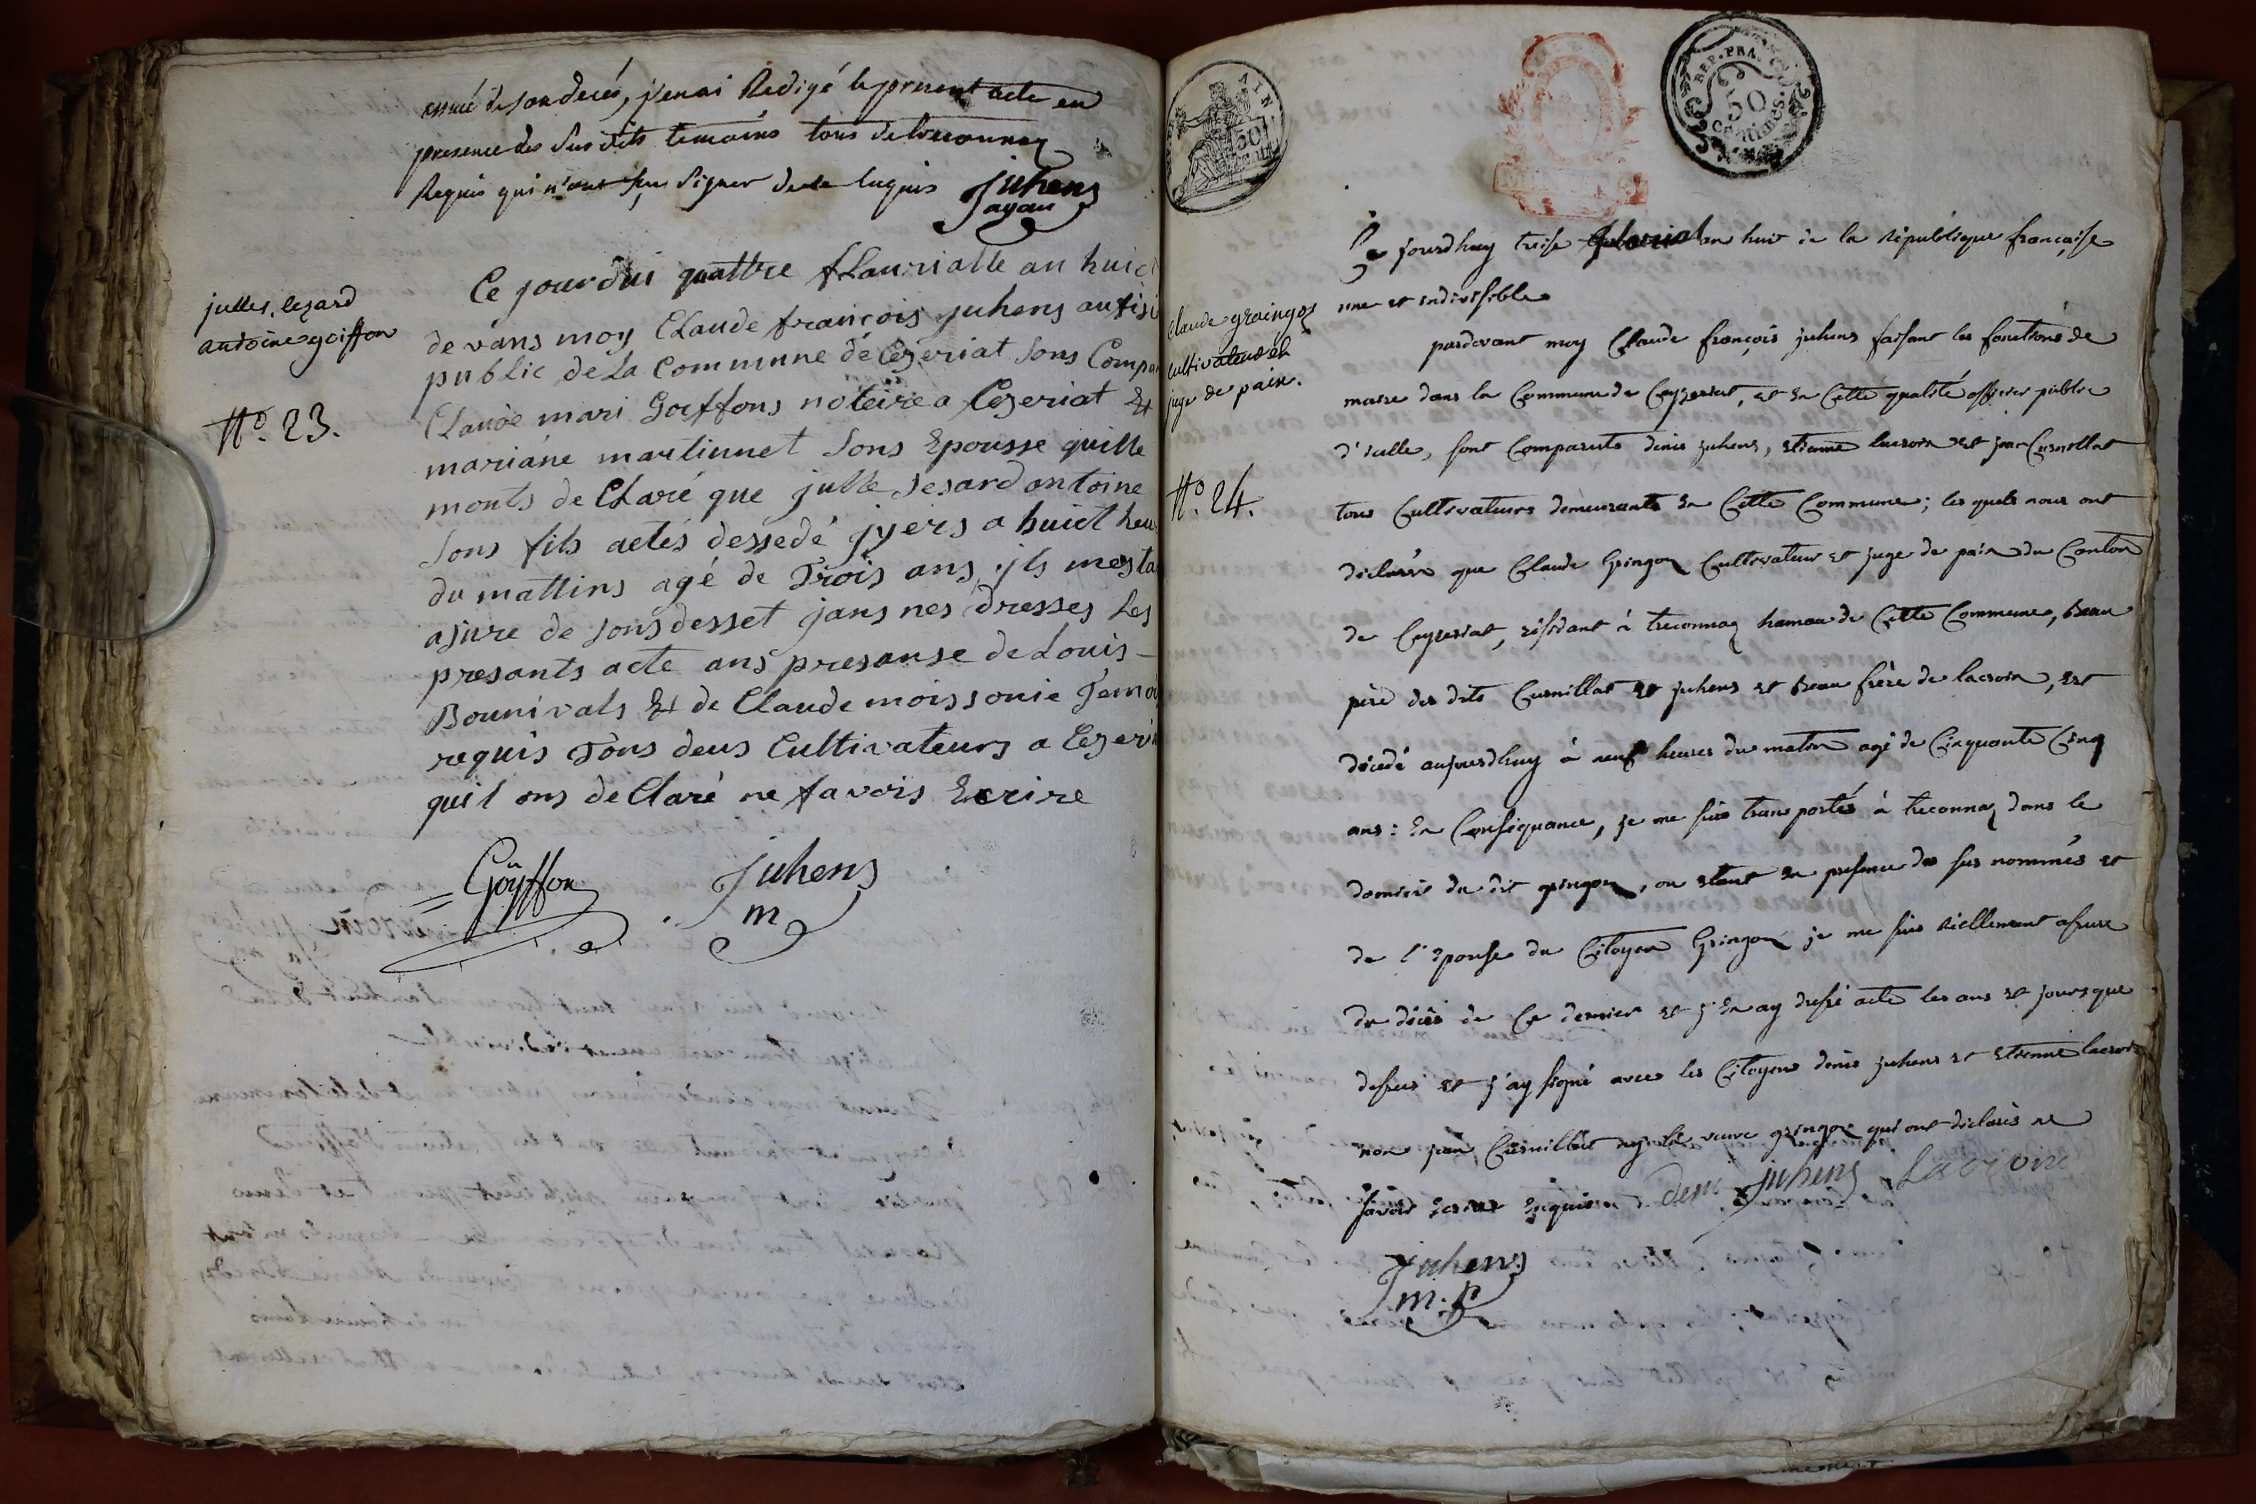 assuré de son decés, j'en ai Redigé le present acte en
presence des Susdits temoins tous de treconnaz
Requis qui n'ont sçu signer de ce enquis Juhens
ayan
julles, cezard
antoine goiffon
N.º 23.
Ce jourdui quattre fLaurialle an huict
de vans moy CLaude françois juhens aufisi
public de La Commune de Cezeriat Sons Compar
CLaude mari Goiffons noteire a Cezeriat Et
mariane martinnet Sons Epousse quille
monts de CLaré que julle Sesard antoine
Sons fils actés dessedé jyers a huict heu
du mattins agé de Trois ans, jls mesta
asure de sons desset jans nes dresses Les
presants acte ans presanse de Louis
Bounivals Et de Claude moissonie Temo
requis Tons deus Cultivateurs a Cezeri
quil ons de Claré ne savois Ecrire
Goÿffon
Juhens
m
AIN
REP. FRA.
50
centimes
Ce jourdhuy treise floréal an huit de la république française
une et indivisible
claude graingoz
cultivateur et
juge de paix.
N.º 24.
pardevant moy Claude françois juhens faisant les fonctions de
maire dans la Commune de Ceyzeriat, et en Cette qualité officier public
d'icelle, sont Comparents denis juhens, etienne lacroix et jean Cusnillat
tous Cultivateurs demeurants en Cette Commune; les quels nous ont
declarés que Claude Gringoz Cultivateur et juge de paix du Canton
de Ceyzeriat, résidant à treconnaz hameau de Cette Commune, beau
père des dits Cusnillat et juhens et beau frère de lacroix, est
décédé aujourdhuy à neuf heures du matin agé de Cinquante Cinq
ans: en Conséquance, je me suis transportés à treconnaz dans le
domicil du dit gringoz, ou etant en presence des sus nommés et
de l'épouse du Citoyen Gringoz je me suis réellement assure
du décés de Ce dernier et j'en ay dressé acte les ans et jours que
dessus et j'ay signé avec les Citoyens denis juhens et etienne lacroix
non jean Cusnillat ny la veuve gringoz qui ont déclarés ne
savoir ecrire enquis denis juhens Lacroix
Juhens
m. p